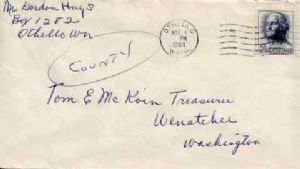 Mrs Gordon Hays
Box 1282
Othello Wn
OTHELLO
PM
1964
WASH.
COUNTY
Tom E McKoin Treasurer
Wenatchee
Washington